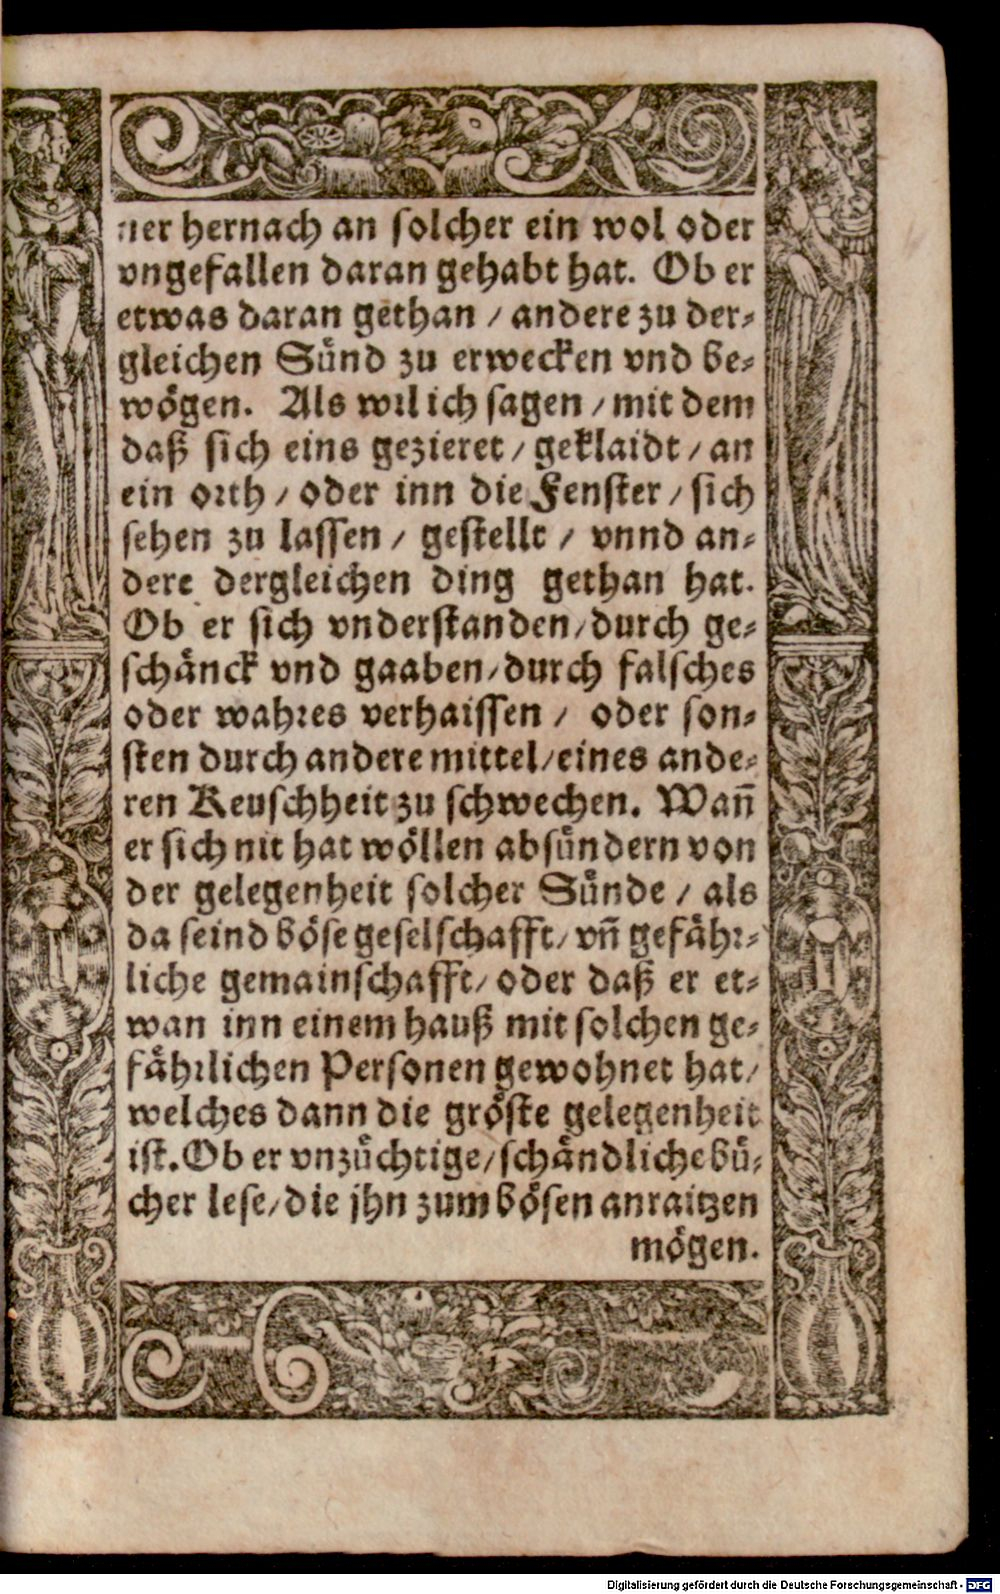 ner hernach an solcher ein wol oder
vngefallen daran gehabt hat. Ob er
etwas daran gethan / andere zu der⸗
gleichen Sünd zu erwecken vnd be⸗
wögen. Als wil ich sagen / mit dem
daß sich eins gezieret / geklaidt / an
ein orth / oder inn die Fenster / sich
sehen zu lassen / gestellt / vnnd an⸗
dere dergleichen ding gethan hat.
Ob er sich vnderstanden / durch ge⸗
schänck vnd gaaben / durch falsches
oder wahres verhaissen / oder son⸗
sten durch andere mittel / eines ande⸗
ren Keuschheit zu schwechen. Wañ
er sich nit hat wöllen absündern von
der gelegenheit solcher Sünde / als
da seind böse geselschafft / vñ gefähr⸗
liche gemainschafft / oder daß er et⸗
wan inn einem hauß mit solchen ge⸗
fährlichen Personen gewohnet hat /
welches dann die gröste gelegenheit
ist. Ob er vnzüchtige / schändliche bü⸗
cher lese / die jhn zum bösen anraitzen
mögen.
Digitalisierung gefördert durch die Deutsche Forschungsgemeinschaft - DFG